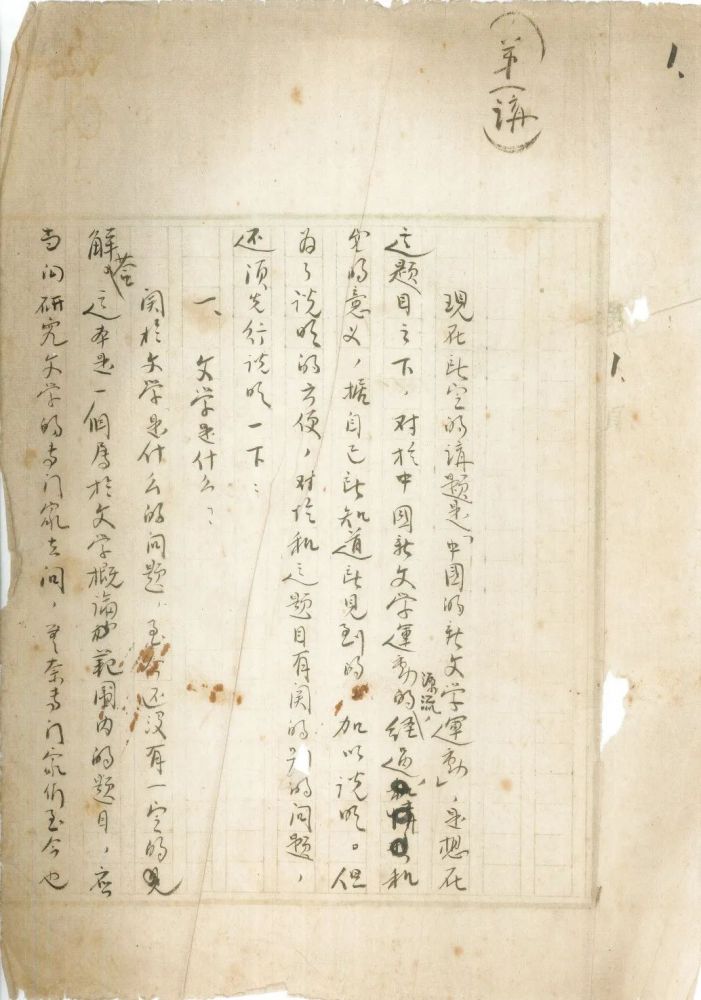 1、
第一講
1、
現在所定的講題是「中國的新文学運動」，是想在
这题目之下，对於中國新文学運動的源流，经过，和
它的意义，据自己所知道所見到的 加以说明。但
为了说明的方便，对於和这题目有関的别的问题，
还须先行说明一下：
一、 文学是什么？
関於文学是什么的问题，至今还没有一定的見
解，这本是一個属於文学概論範圍内的题目，应
当向研究文学的专门家去问，無奈专门家们至今也